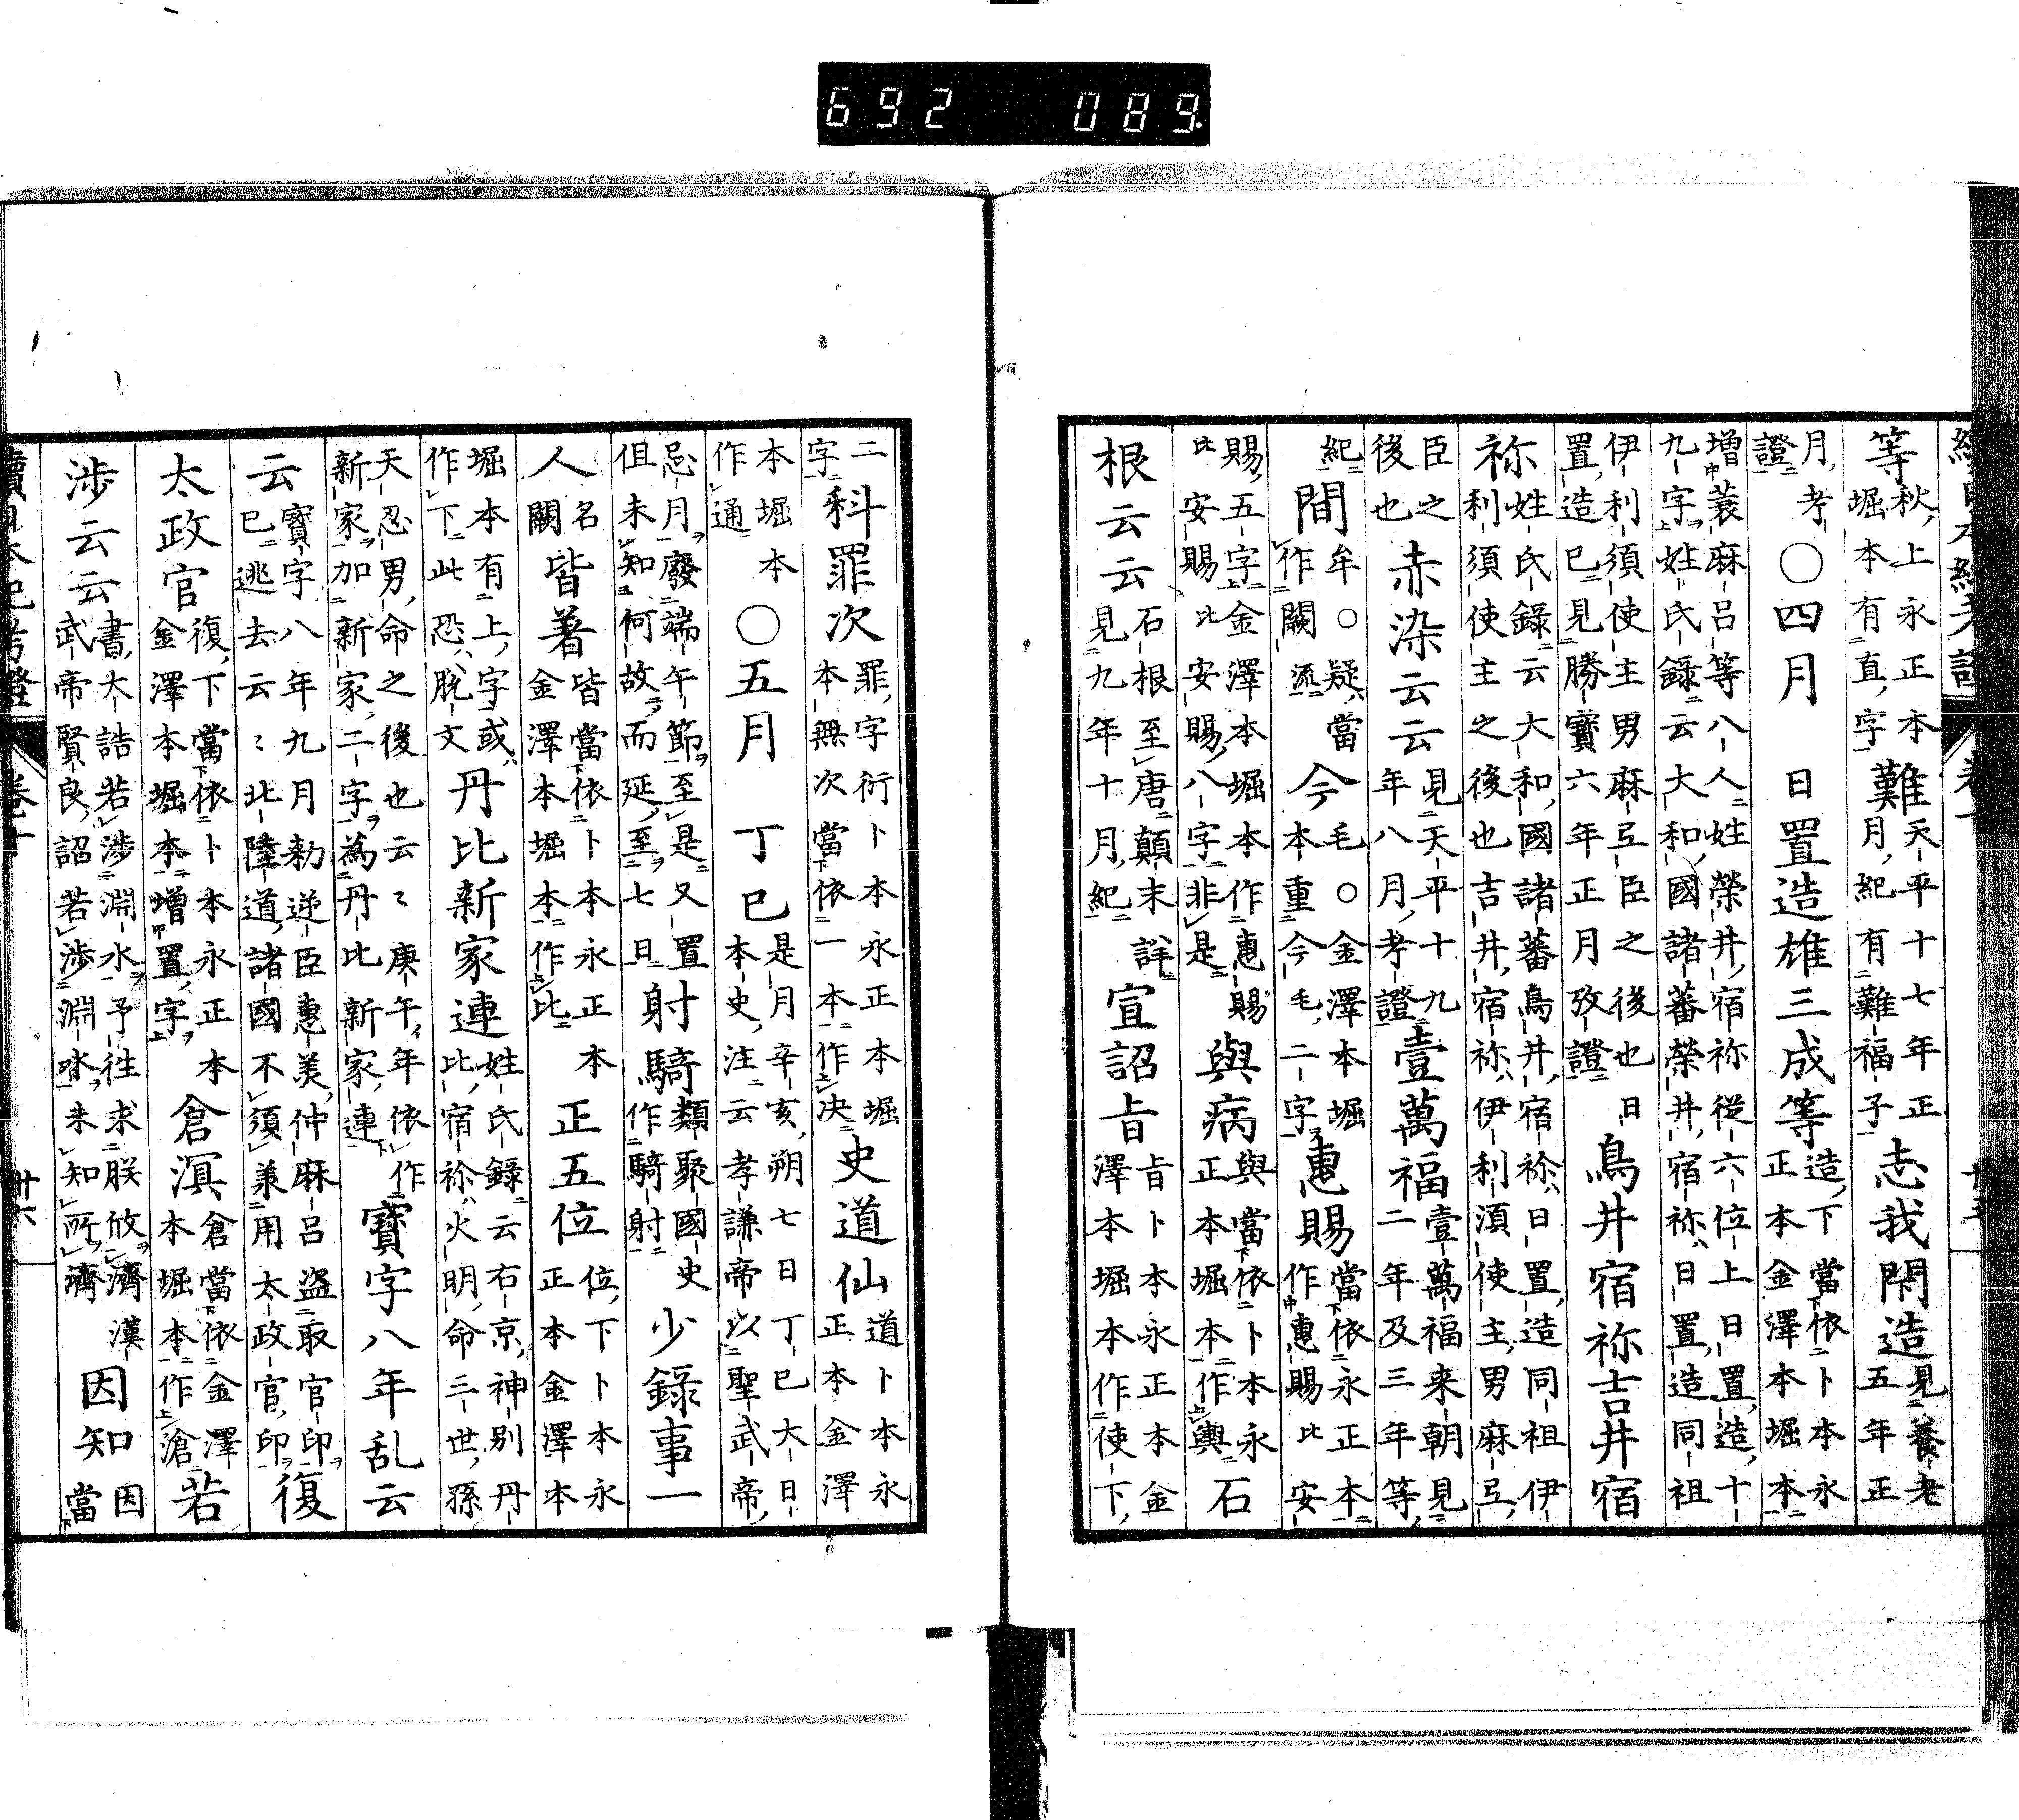 692 089
等秋上永正本堀本有真字難天平十七年正月紀有難福子志我閇造見養老五年正
月考證〇四月日置造雄三成等造下當依卜本永正本金澤本堀本
增蓑麻呂等八人姓榮井宿祢從六位上日置造十九字姓氏錄云大和國諸蕃榮井宿祢日置造同祖
伊利須使主男麻弖臣之後也日置造巳見勝寶六年正月攷證鳥井宿祢吉井宿
祢姓氏錄云大和國諸蕃鳥井宿祢日置造同祖伊利須使主之後也吉井宿祢伊利須使主男麻弖
臣之後也赤染云云見天平十九年八月考證壹萬福壹萬福来朝見二年及三年等
紀間牟〇疑當作闕流今毛〇金澤本堀本重今毛二字惠賜當依永正本作惠賜比安
賜五字金澤本堀本作惠賜比安賜比安賜八字非是與病與當依卜本永正本堀本作輿石
根云云石根至唐顛末詳見九年十月紀宣詔旨旨卜本永正本金澤本堀本作使下
二字科罪次罪字衍卜本永正本堀本無次當依一本作决史道仙道卜本永正本金澤
本堀本作通本〇五月丁巳是月辛亥朔七日丁巳大日本史注云孝謙帝以聖武帝
忌月廢端午節至是又置但未知何故而延至七日射騎類聚國史作騎射少錄事一
人名闕皆著皆當依卜本永正本金澤本堀本作比正五位位下卜本永正本金澤本
堀本有上字或作下此恐脫文丹比新家連姓氏錄云右京神別丹比宿祢火明命三世孫
天忍男命之後也云〻庚午年依作新家加新家二字為丹比新家連寶字八年乱云
云寶字八年九月勅逆臣惠美仲麻呂盗取官印巳逃去云〻北陸道諸國不須兼用太政官印復
太政官復下當依卜本永正本金澤本堀本增置字倉滇倉當依金澤本堀本作滄若
涉云云書大誥若涉淵水予往求朕攸濟漢武帝賢良詔若涉淵水未知所濟因知因當
續日本紀考證 卷十 廿六